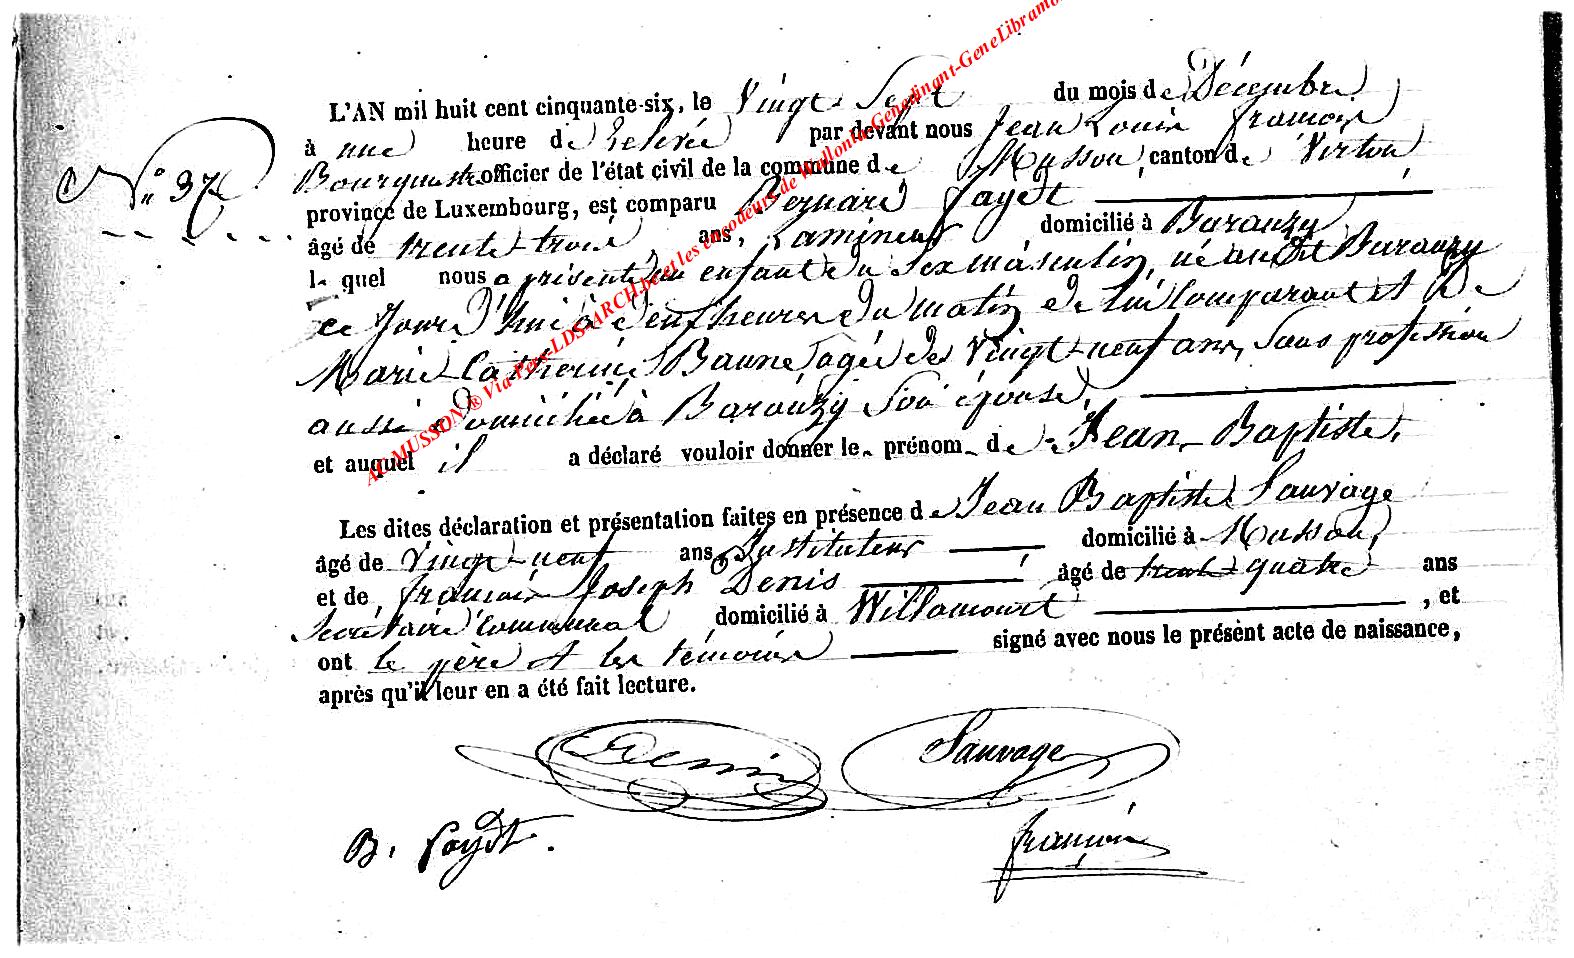 L'AN mil huit cent cinquante-six, le Vingt-Sept du mois de Décembre
à une heure de relevée par devant nous Jean Louis françois
Bourgmestre officier de l'état civil de la commune de Musson, canton de Virton
N° 37
province de Luxembourg, est comparu Bernard faydt
âgé de trente-trois ans, Lamineur domicilié à Baranzy
lequel nous a présenté un enfant du Sexe masculin, né audit Baranzy
ce Jourd'hui à neuf heures du matin de lui Comparant et de
Marie Catherine Baune agée de Vingt-neuf ans, Sans profession
aussi domiciliée à Baranzy Son épouse,
et auquel il a déclaré vouloir donner le prénom de Jean-Baptiste,
Les dites déclaration et présentation faites en présence de Jean Baptiste Sauvage
âgé de vingt-neuf ans, Instituteur domicilié à Musson,
et de françois Joseph Denis âgé de trente quatre ans
Secrétaire Communal, domicilié à Willancourt, et
ont le père et les témoins signé avec nous le présent acte de naissance,
après qu'il leur en a été fait lecture.
Denis Sauvage
B. faydt. françois
AC MUSSON ® Via Pers-LDS-ARCH.be et les encodeurs de Wallonia-Genedinant-GeneLibramo